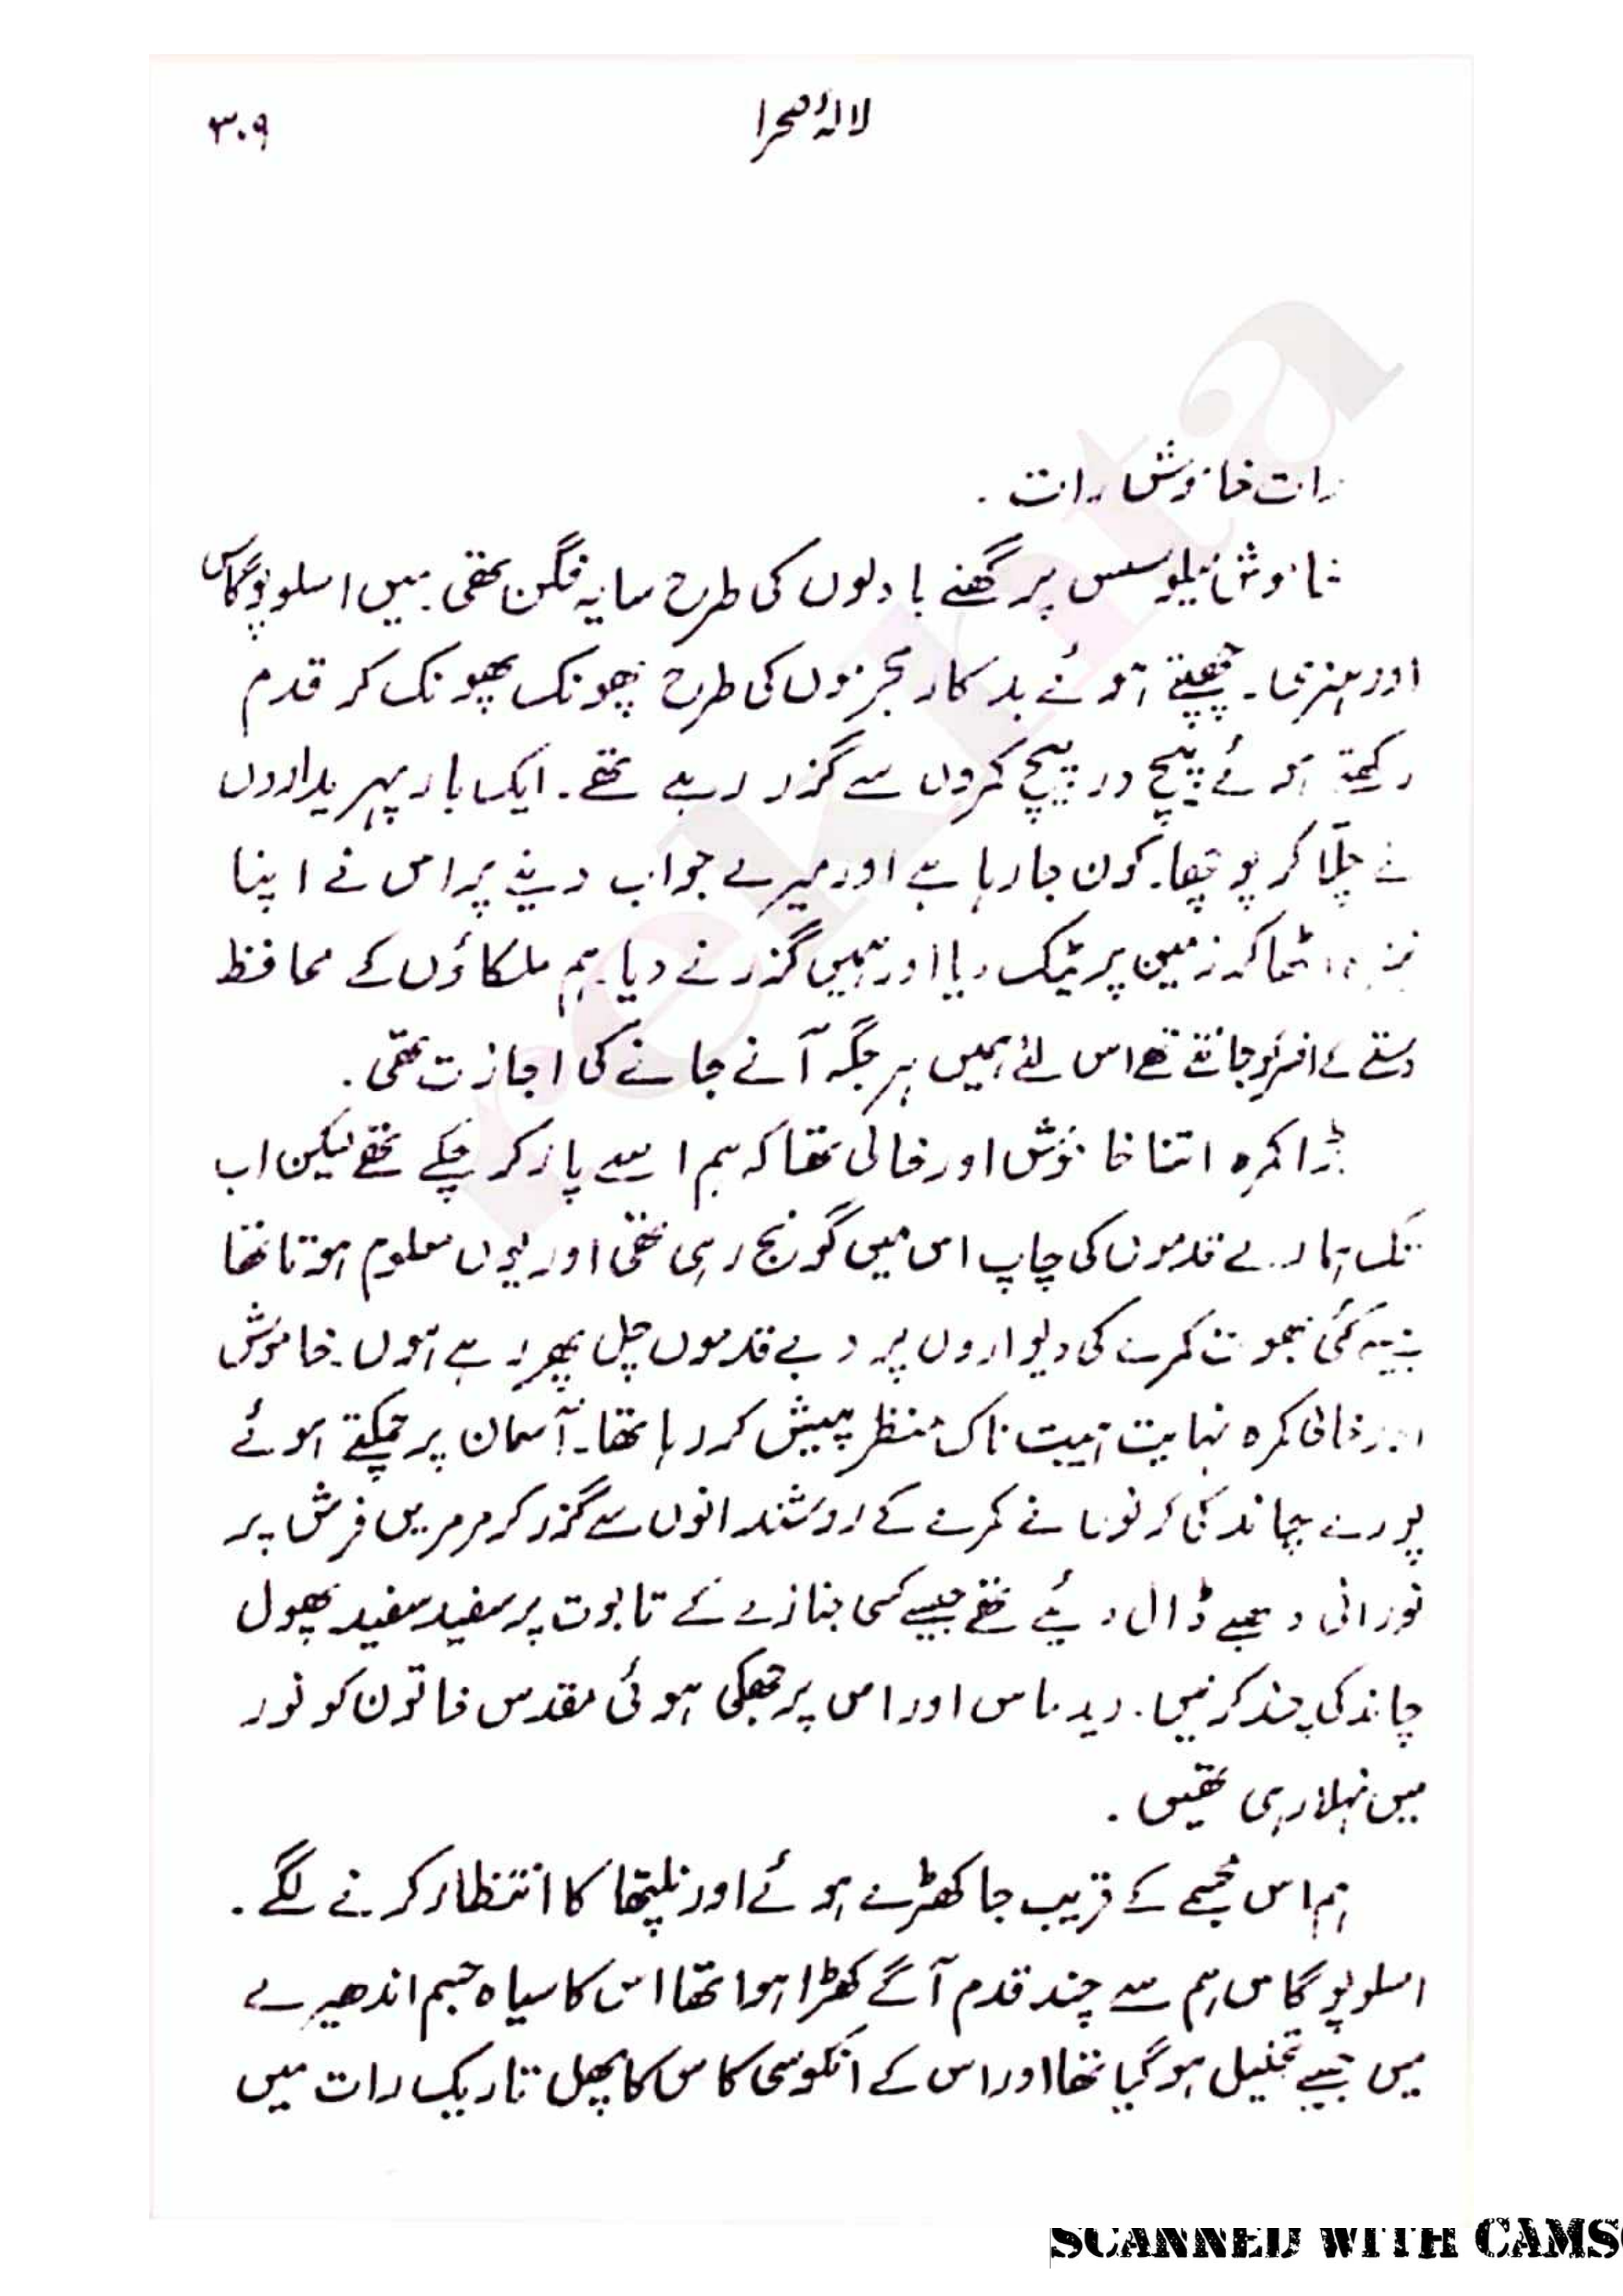 لالۂ صحرا ۳۰۹
رات خاموش رات .
خاموش میلوسس پر گھنے بادلوں کی طرح سایہ فگن تھی . میں اسلوپوگاس
اور ہنری . چھپتے ہوئے بدکار مجرموں کی طرح پھونک پھونک کر قدم
رکھتے ہوئے پیچ در پیچ کمروں سے گزر رہے تھے . ایک بار پہریداروں
نے چلّا کر پوچھا . کون جا رہا ہے اور میرے جواب دینے پر اس نے اپنا
نیزہ اٹھا کر زمین پر ٹیک دیا اور ہمیں گزرنے دیا . ہم ملکاؤں کے محافظ
دستے کے افسر تھے اس لئے ہمیں ہر جگہ آنے جانے کی اجازت تھی .
بڑا کمرہ اتنا خاموش اور خالی تھا کہ ہم اسے پار کر چکے تھے لیکن اب
تک ہمارے قدموں کی چاپ اس میں گونج رہی تھی اور یوں معلوم ہوتا تھا
جیسے کئی بھوت کمرے کی دیواروں پر دبے قدموں چل پھر رہے ہوں . خاموش
اور خالی کمرہ نہایت ہیبت ناک منظر پیش کر رہا تھا . آسمان پر چمکتے ہوئے
پورے چاند کی کرنوں نے کمرے کے روشندانوں سے گزر کر مرمریں فرش پر
نورانی دھبے ڈال دیئے تھے جیسے کسی جنازے کے تابوت پر سفید سفید پھول
چاند کی چند کرنیں . ریدماس اور اس پر جھکی ہوئی مقدس خاتون کو نور
میں نہلا رہی تھیں .
ہم اس مجسمے کے قریب جا کھڑے ہوئے اور نلپتھا کا انتظار کرنے لگے .
اسلوپوگاس ہم سے چند قدم آگے کھڑا ہوا تھا اس کا سیاہ جسم اندھیرے
میں جیسے تحلیل ہو گیا تھا اور اس کے انکوسی کاس کا پھل تاریک رات میں
SCANNED WITH CAMS